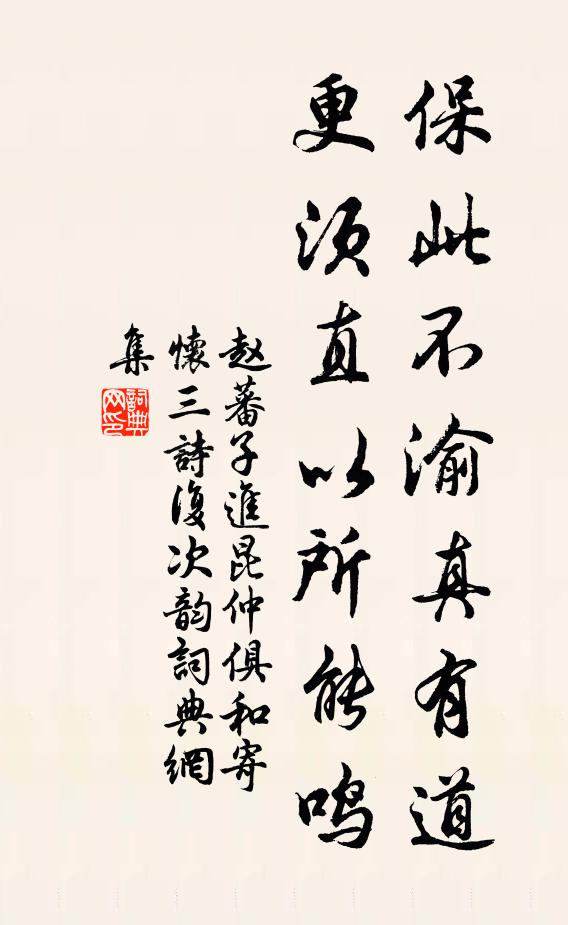 保此不渝真有道
更须直以所能鸣
赵蕃子進昆仲俱和寄
懷三詩復次韵詞典網
集
詞典
网印